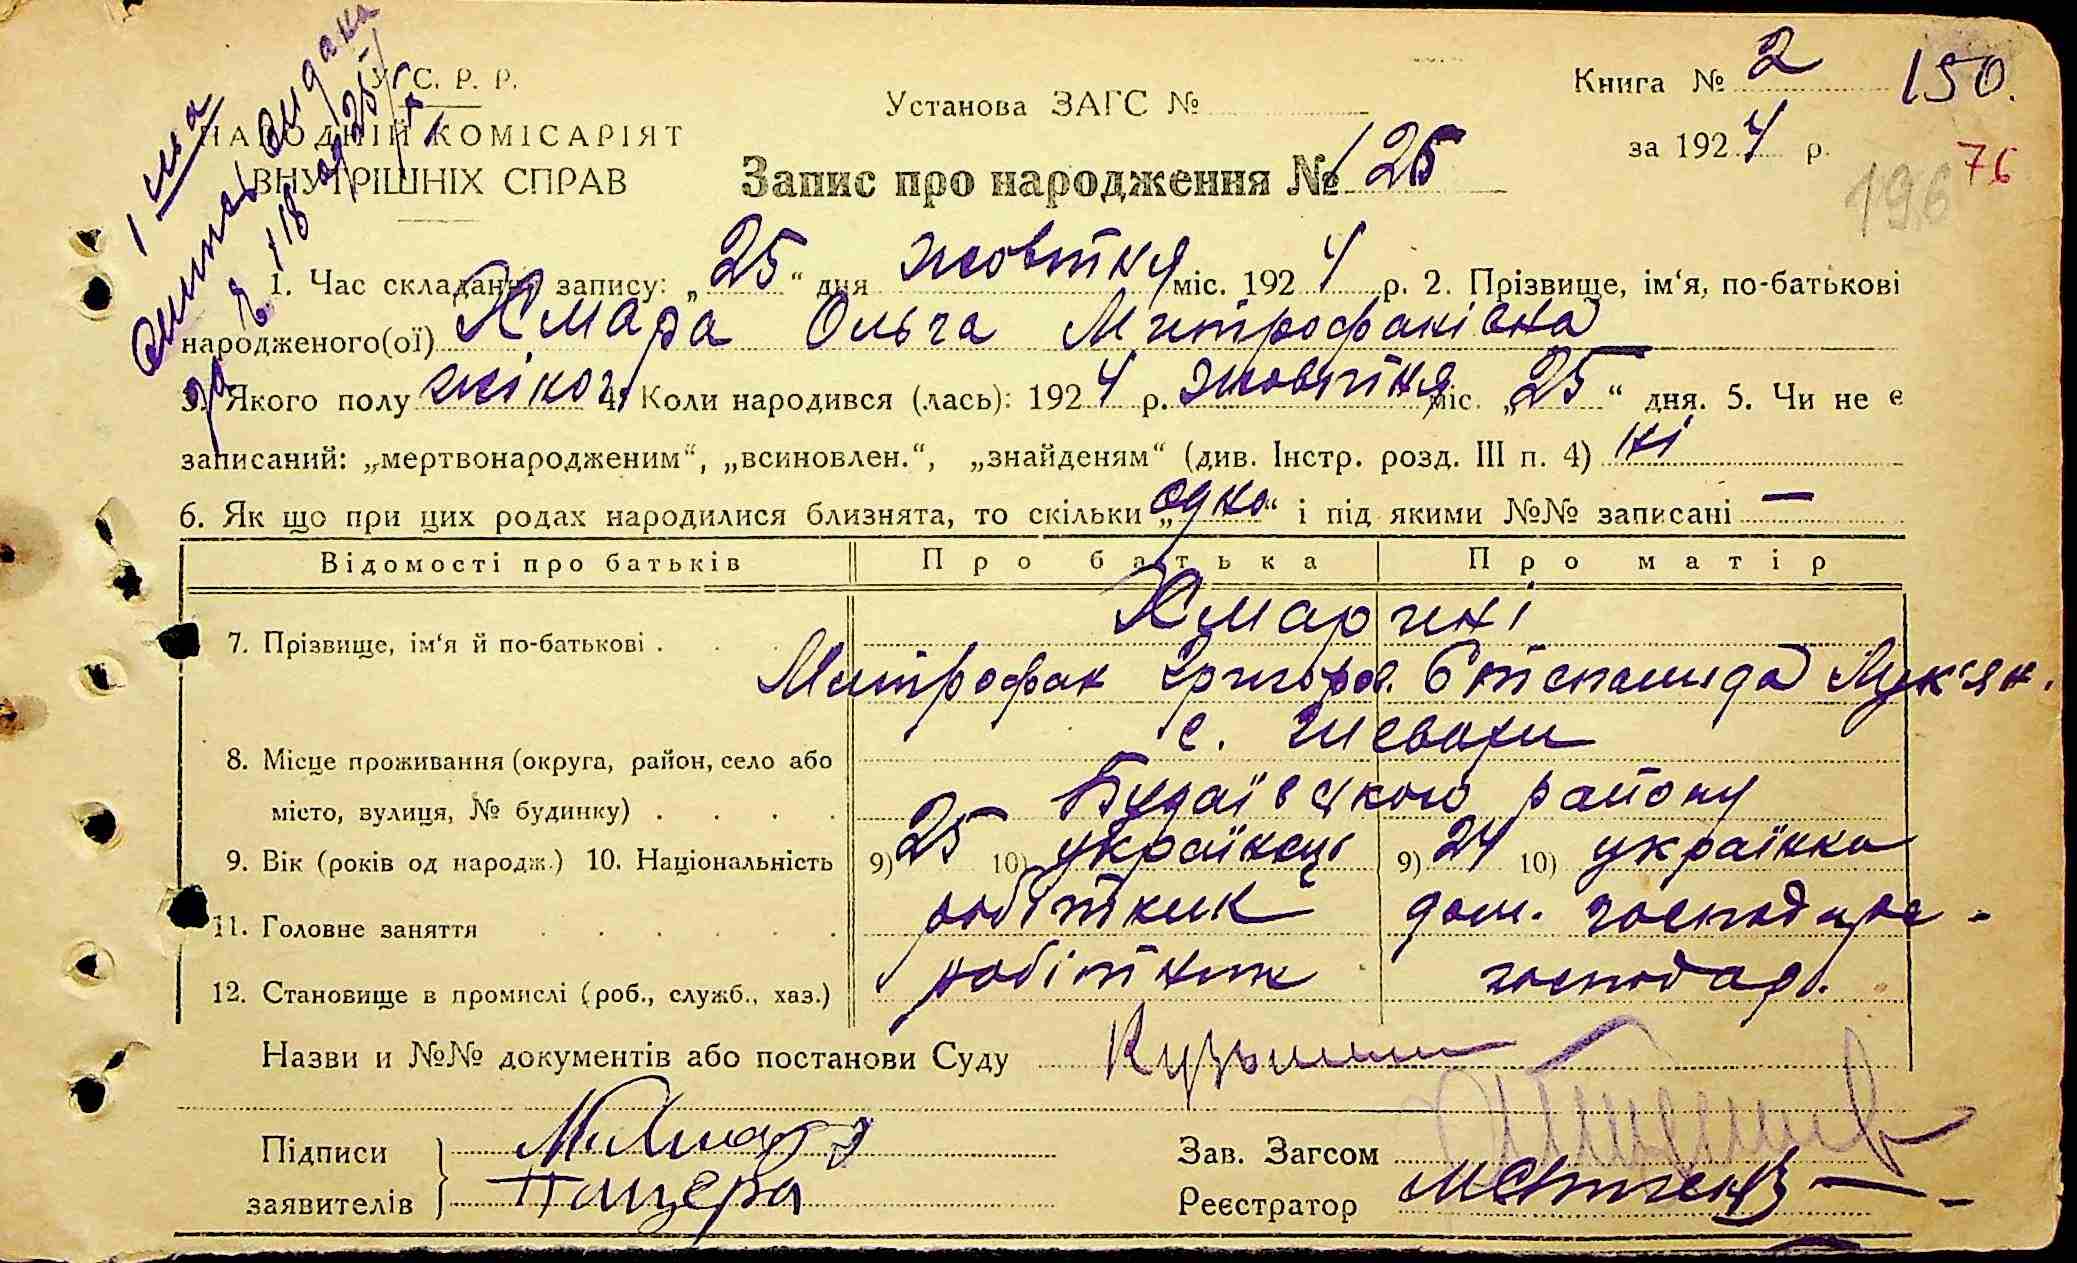 У. С. Р. Р.
НАРОДНІЙ КОМІСАРІЯТ
ВНУТРІШНІХ СПРАВ
1
Установа ЗАГС №
Книга № 2
150.
за 1924 р.
76
196
Запис про народження № 125
1. Час складання запису: „25“ дня жовтня міс. 1924 р. 2. Прізвище, ім‘я, по-батькові
народженого(ої) Хмара Ольга Митрофанівна
3. Якого полу жіноч. 4. Коли народився (лась): 1924 р. жовтня міс. „25“ дня. 5. Чи не є
записаний: „мертвонародженим“, „всиновлен.“, „знайденям“ (див. Інстр. розд. III п. 4) ні
6. Як що при цих родах народилися близнята, то скільки „одна“ і під якими №№ записані —
Відомості про батьків Про батька Про матір
Хмарині
7. Прізвище, ім‘я й по-батькові .
Митрофан Григоров. Єстепанида Лук'ян.
с.
8. Місце проживання (округа, район, село або
місто, вулиця, № будинку) . . . .
Будаївського району
9. Вік (років од народж.) 10. Національність 9) 25 10) українець 9) 24 10) українка
11. Головне заняття . . . . . . робітник дом. господарс-
12. Становище в промислі (роб., служб., хаз.) робітник господар.
Назви и №№ документів або постанови Суду
Підписи
заявителів
М. Хмара
Зав. Загсом
Реєстратор